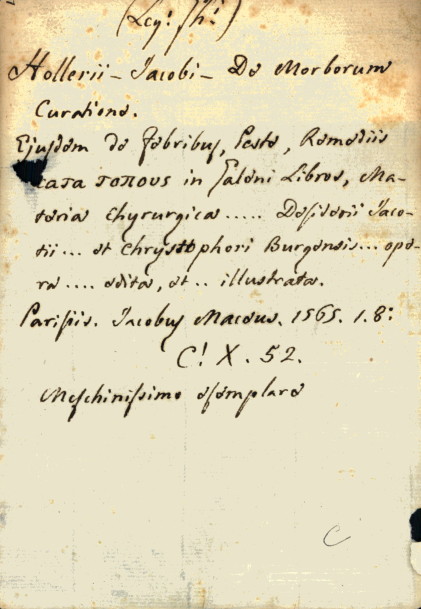 (Leg! Th!)
Hollerii - Jacobi - De Morborum
Curatione.
Ejusdem de febribus, Peste, Remediis
κατα τοπους in Galeni Libros, Ma-
teria Chyrurgica ..... Desiderii Jaco-
tii ... et Chrystophori Burgensis ... ope-
ra .... edita, et .. illustrata.
Parisiis. Jacobus Maceus. 1565. 1. 8:
C! X. 52.
Meschinissimo esemplare
C